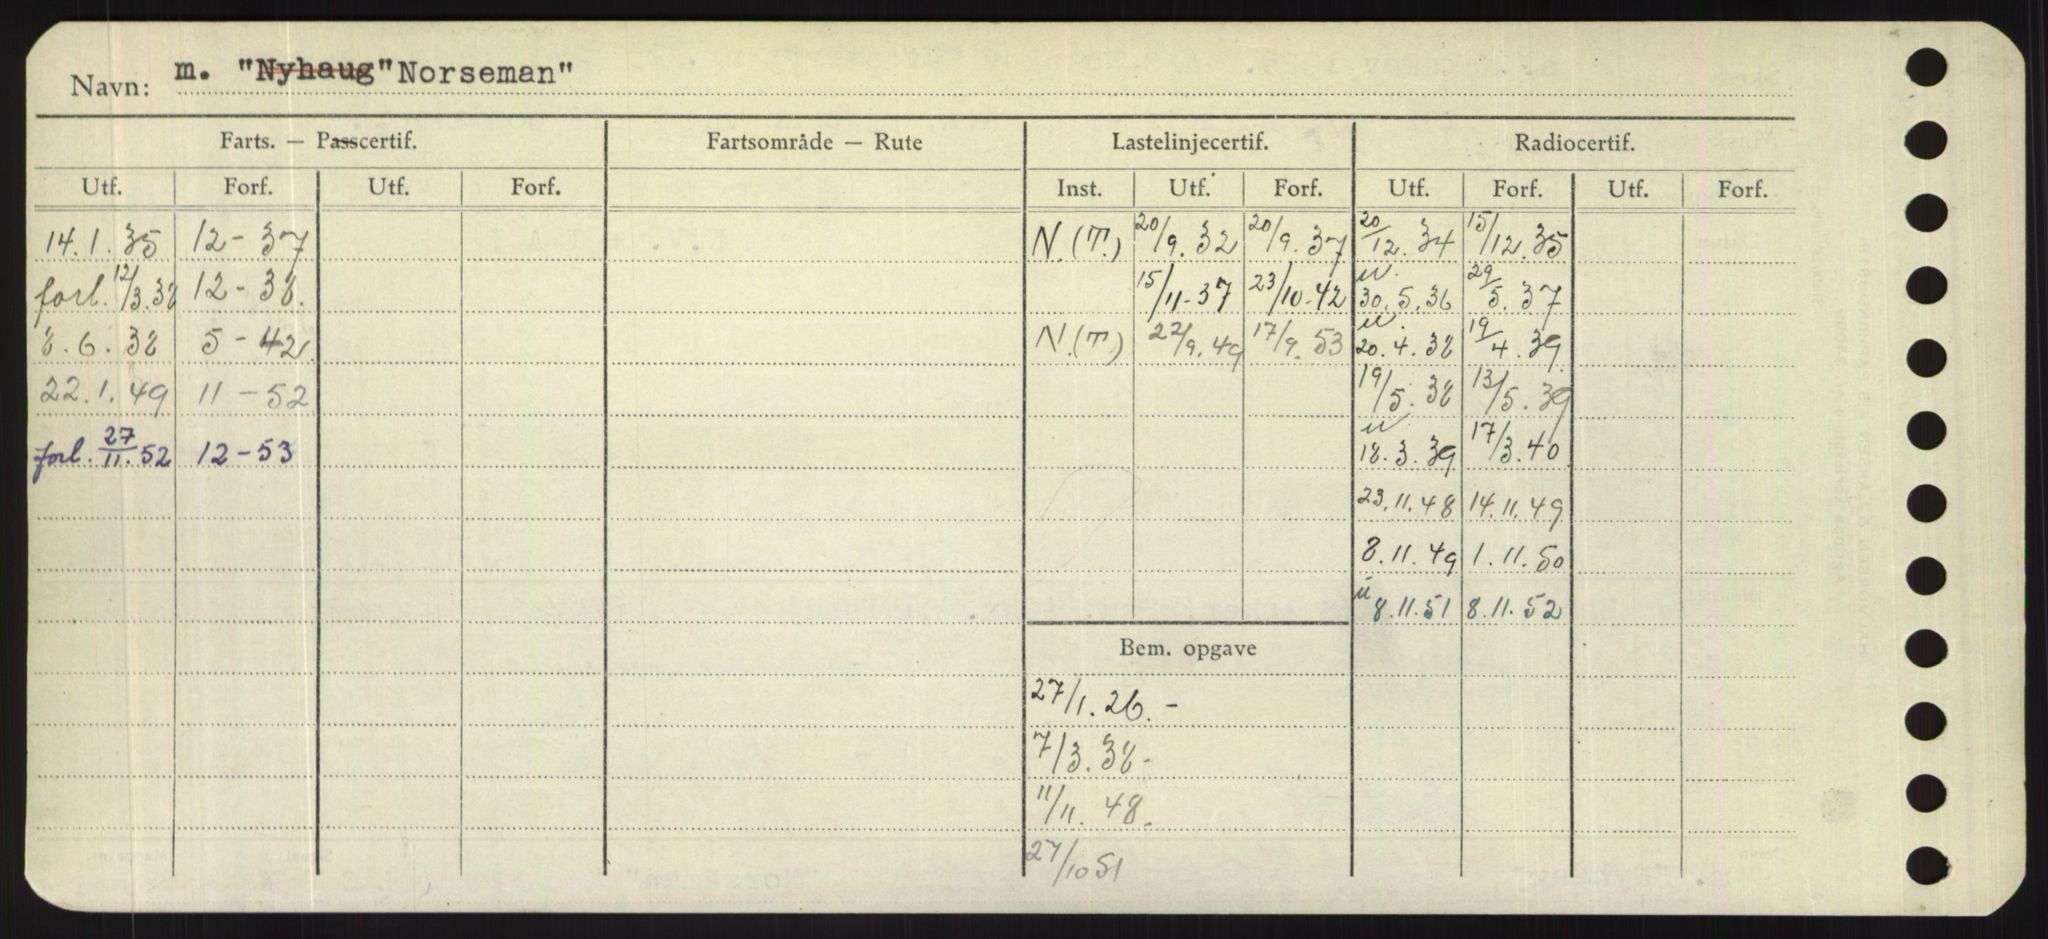 Navn: m. "Nyhaug" Norseman"
Farts. — Passcertif. Fartsområde — Rute Lastelinjecertif. Radiocertif.
Utf. Forf. Utf. Forf. Inst. Utf. Forf. Utf. Forf. Utf. Forf.
14.1.35 12-37 N.(T.) 20/9.32 20/9.37 20/12.34 15/12.35
forl. 12/3.38 12-38. 15/11-37 23/10-42 u. 30.5.36 29/5.37
8.6.38 5-42 N.(T) 22/9.49 17/9.53 u. 20.4.38 19/4.39
22.1.49 11-52 19/5.38 13/5.39
forl. 27/11.52 12-53 u 18.3.39 17/3.40
23.11.48 14.11.49
8.11.49 1.11.50
u 8.11.51 8.11.52
Bem. opgave
27/1.26.-
7/3.38-
11/11.48.
27/10 51